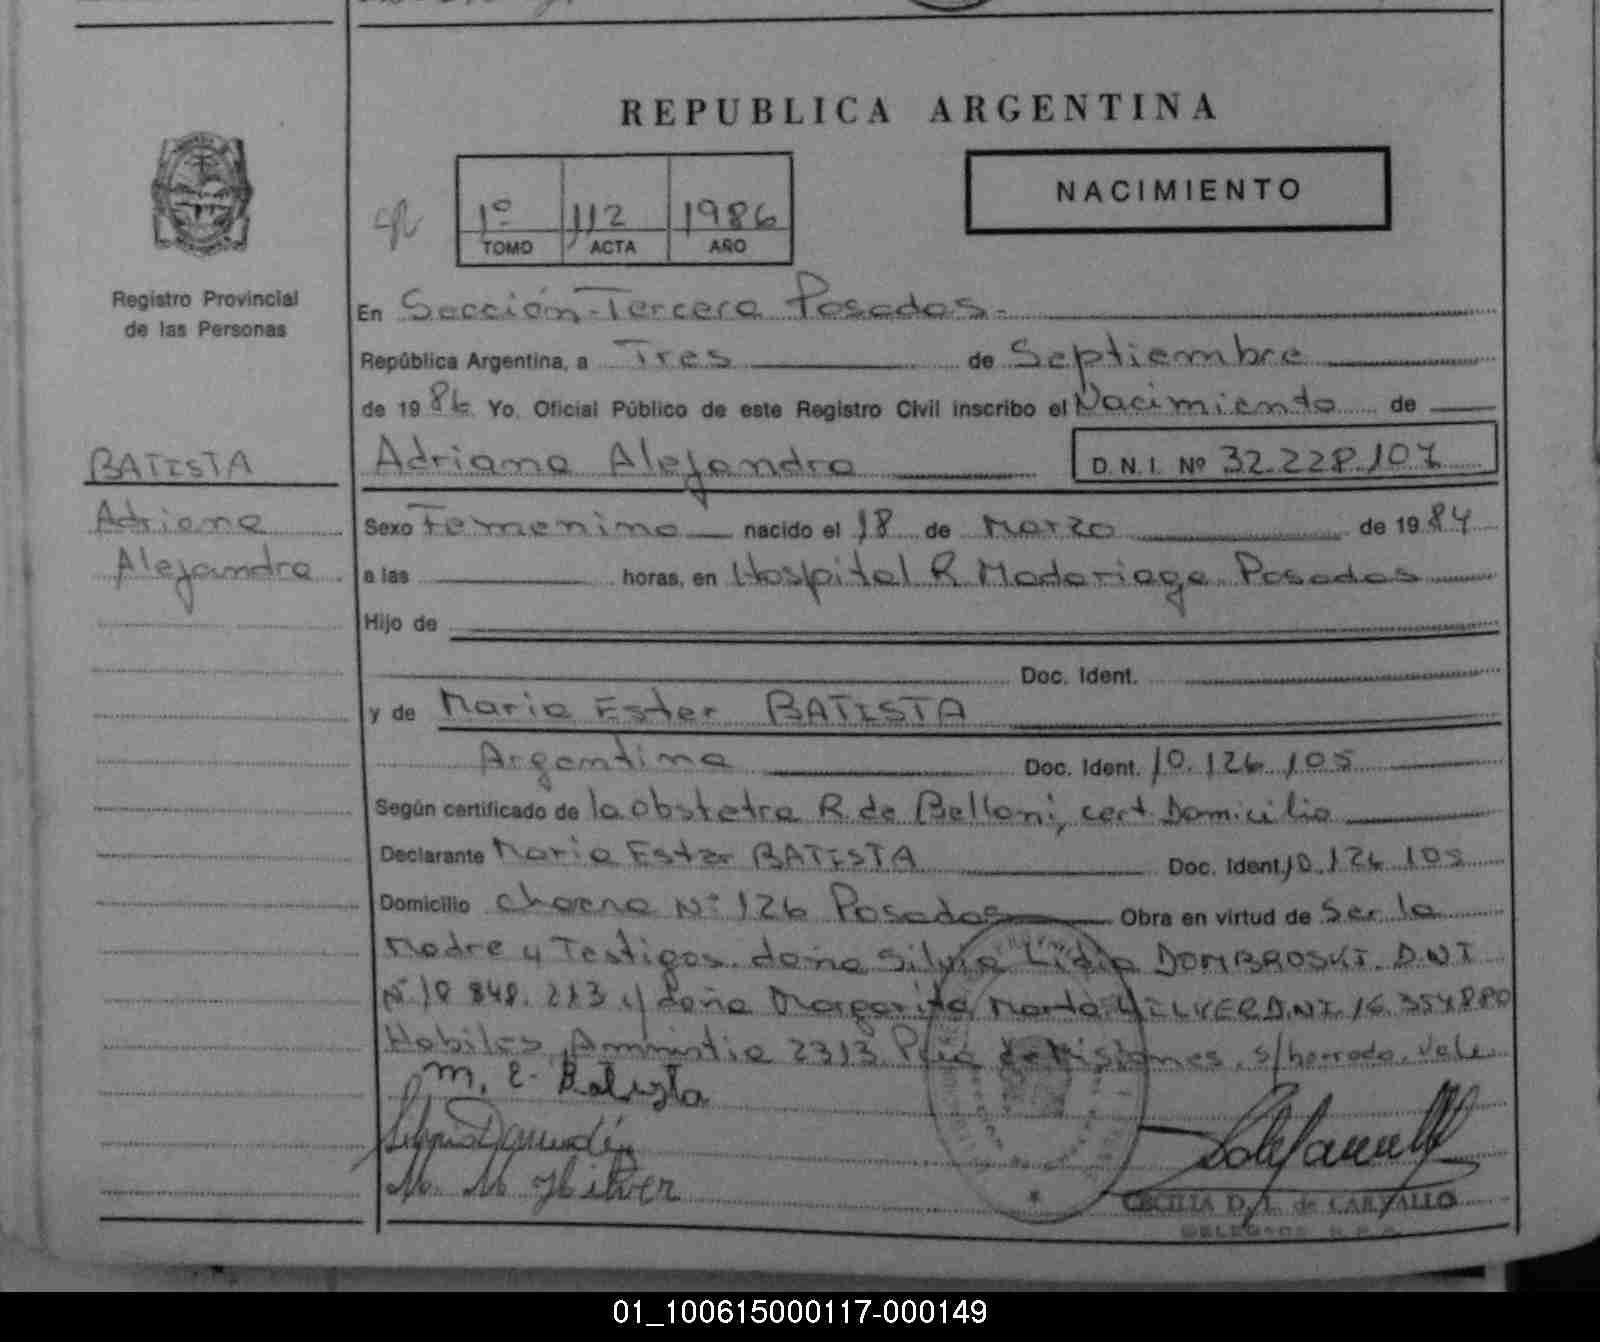 REPUBLICA ARGENTINA
NACIMIENTO
1º 112 1986
TOMO ACTA AÑO
Registro Provincial
de las Personas
En Sección Tercera Posadas.-
República Argentina, a Tres de Septiembre
de 1986. Yo. Oficial Público de este Registro Civil inscribo el Nacimiento de
BATISTA
Adriana Alejandra D. N. I. Nº 32.228.107
Adriana
Alejandra
Sexo Femenino nacido el 18 de Marzo de 1984
a las horas, en Hospital R Madariaga Posadas
Hijo de
Doc. Ident.
y de Maria Ester BATISTA
Argentina Doc. Ident. 10.126.105
Según certificado de la obstetra R. de Belloni, cert Domicilio
Declarante Maria Ester BATISTA Doc. Ident. 10.126.105
Domicilio chacra Nº 126 Posadas Obra en virtud de Ser la
Madre y Testigos. doña Silvia Lidia DOMBROSKI. D.N.I
Nº 18.848.213 y doña Margarita Marta HILVER D.N.I. 16.354.880
Habiles, Amnistia 2313 Pcia de Misiones. s/borrado. Vale
M. E. Batista
M. M. Hilver
CECILIA D. L. de CARVALLO
01_100615000117-000149